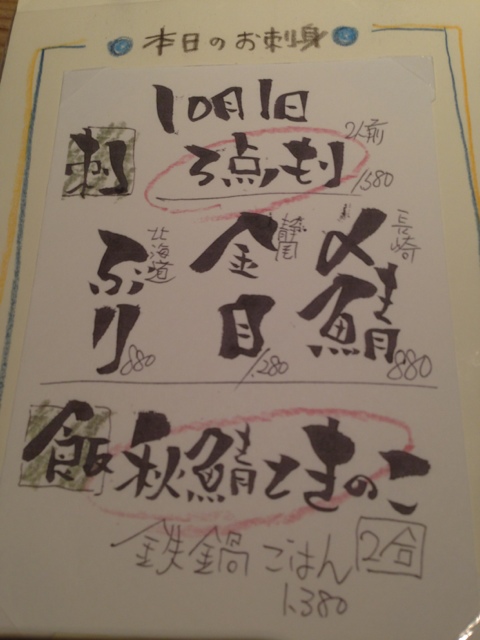 本日のお刺身
10月1日
刺 3点もり 2人前 1,580
〆鯖 長崎 880
金目 静岡 1,280
ぶり 北海道 880
飯 秋鯖ときのこ
鉄鍋ごはん 2合
1,380